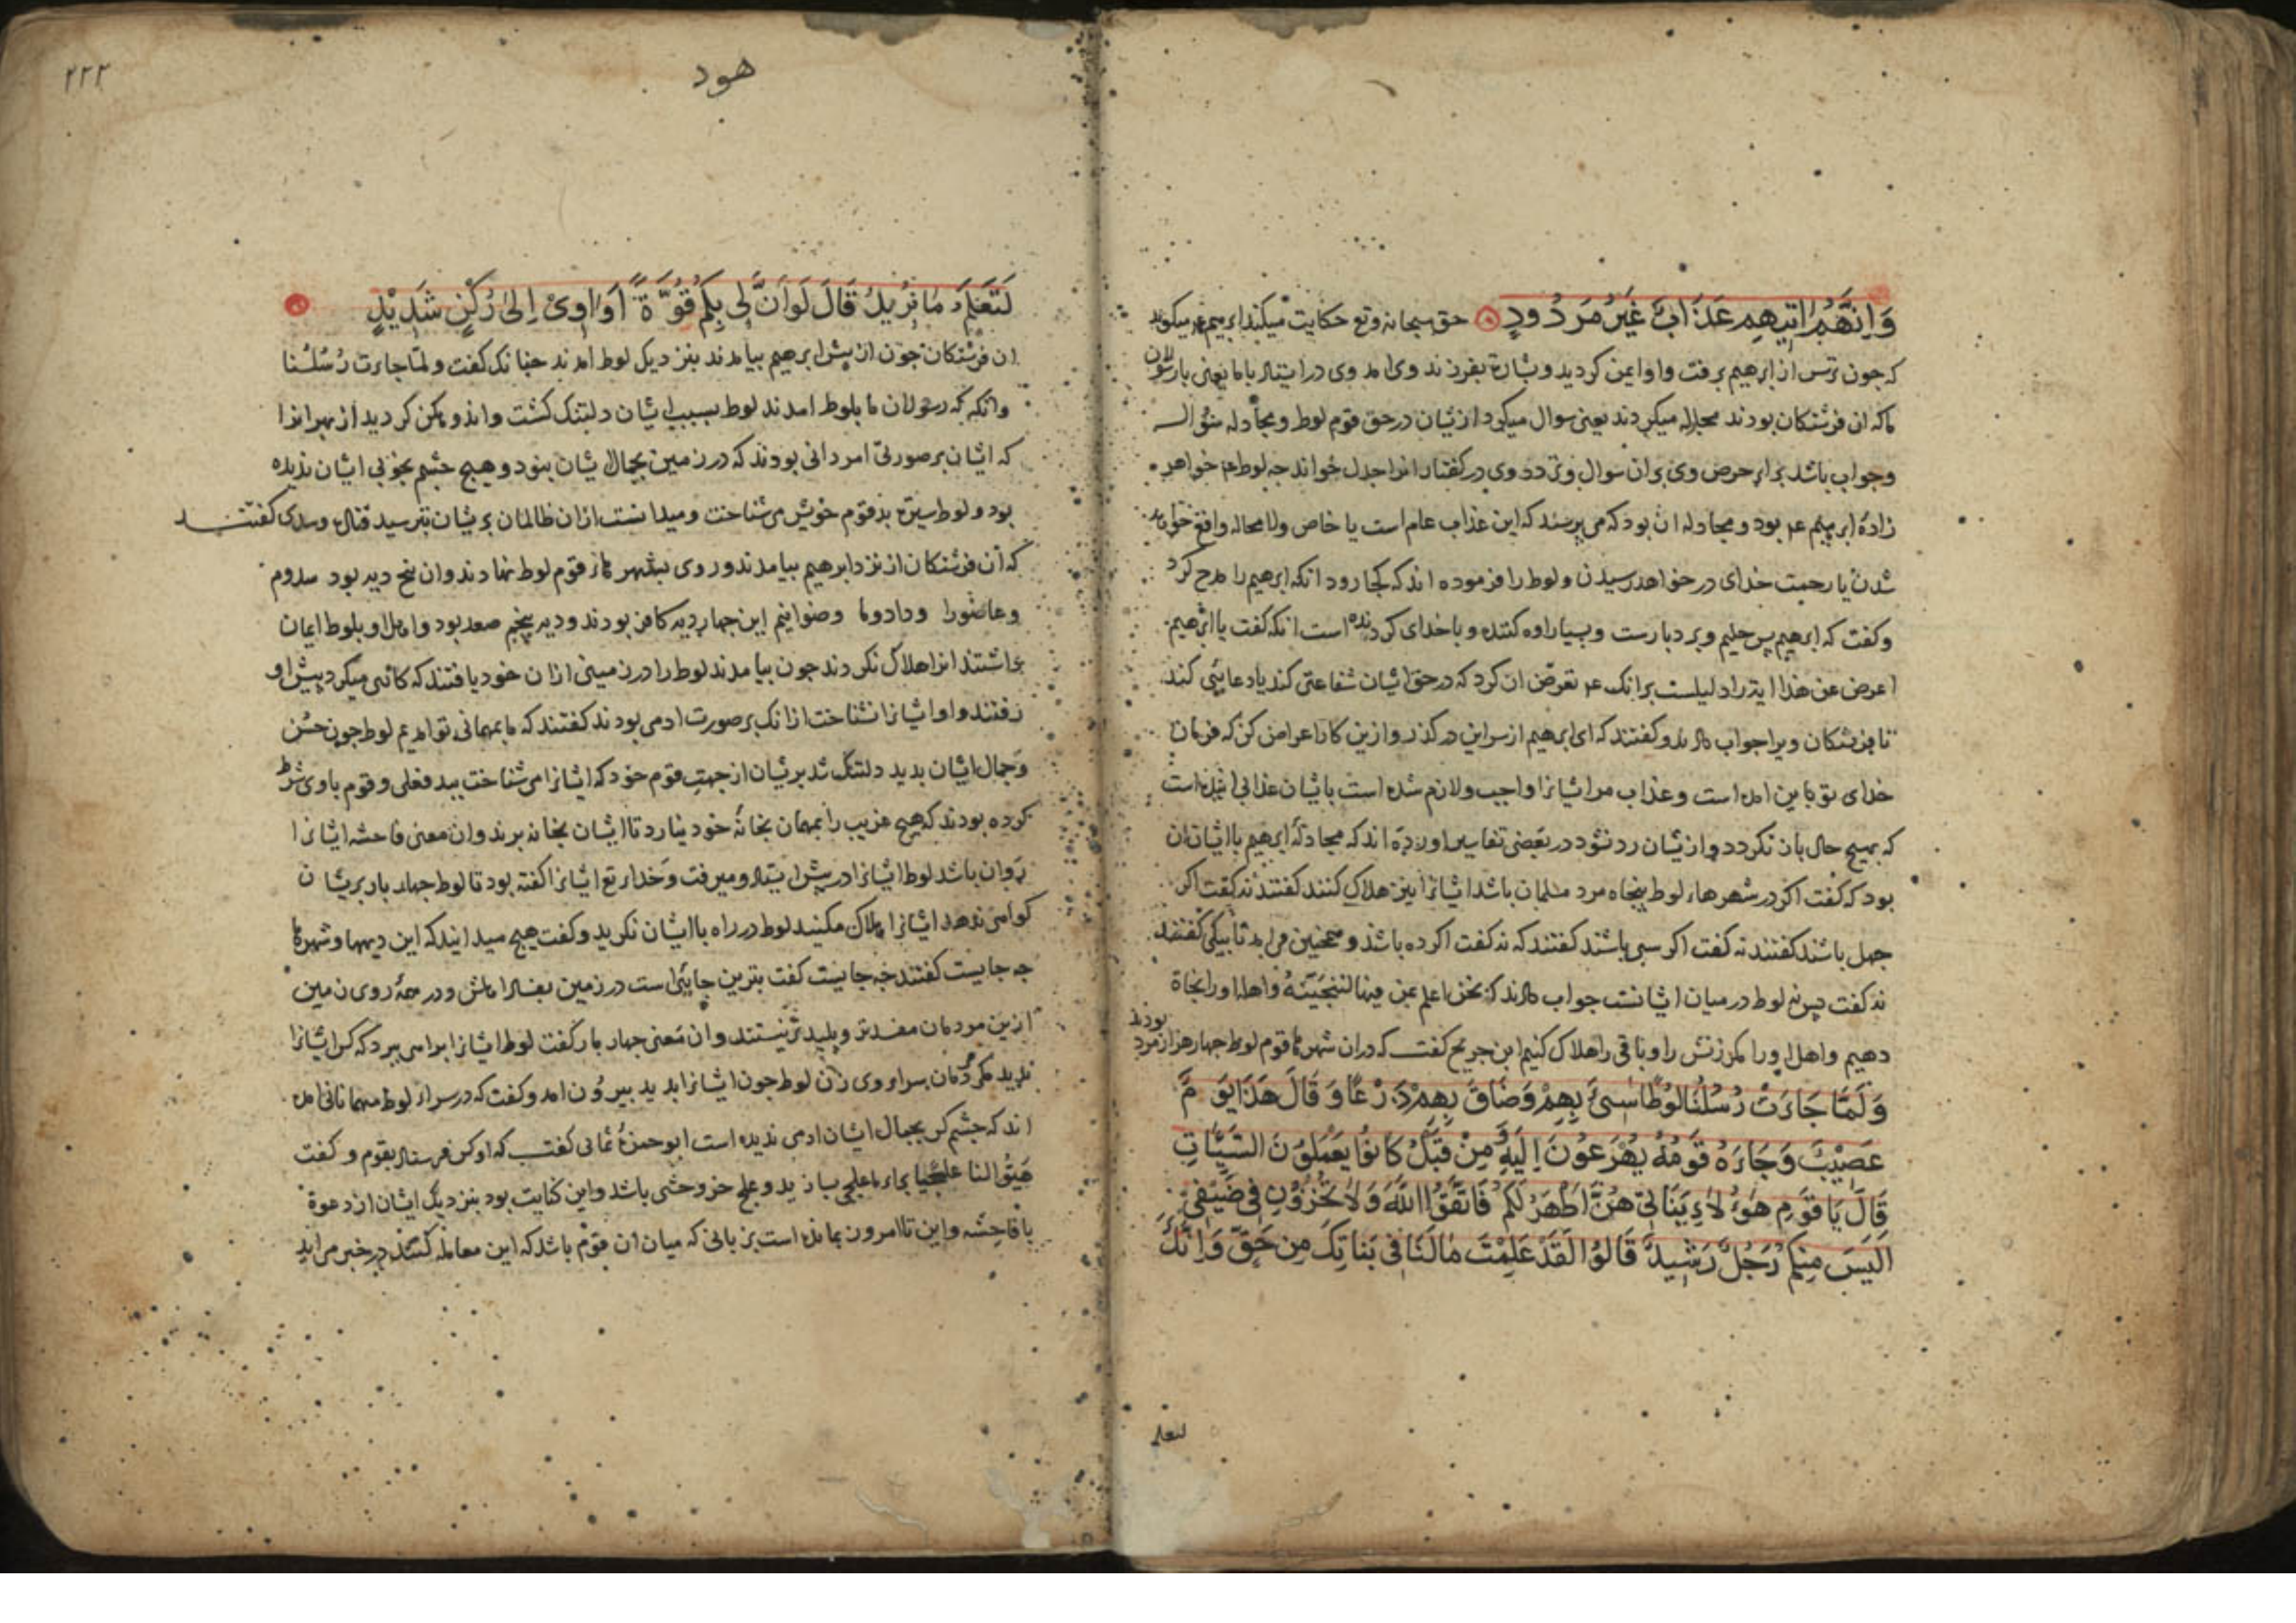 وَاِنَّهُمْ اٰتِيهِمْ عَذَابٌ غَيْرُ مَرْدُودٍ حق سبحانه وتع حكايت ميكند ابرهيم عم ميكويد
كه جون ترس از ابرهيم برفت واو ايمن كرديد وبشارة بفرزند وى امد وى در ايستاد باما يعنى با رسولان
ما كه ان فرشتكان بودند مجادله ميكردند يعنى سوال ميكرد ازيشان در حق قوم لوط ومجادله سؤال
وجواب باشد براى حرص وى بران سوال وتردد وى در كفتار انرا جدل خواند جه لوط عم خواهر
زادهٔ ابرهيم عم بود ومجادله ان بود كه مى پرسيد كه اين عذاب عام است يا خاص ولا محاله واقع خواهد
شدن يا رحمت خداى در خواهد رسيدن ولوط را فرموده اند كه كجا رود انكه ابرهيم را مدح كرد
وكفت كه ابرهيم پس حليم وبردبارست وبسيار اوه كننده وبا خداى كردنده است انكه كفت يا ابرهيم
اعرض عن هذا اية را دليلست برانك عم تعرض ان كرد كه در حق ايشان شفاعتى كند يا دعايى كند
تا فرشتكان ويرا جواب دادند وكفتند كه اى ابرهيم از سر اين در كذر وازين كار اعراض كن كه فرمان
خداى تو باين امده است وعذاب مر ايشانرا واجب ولازم شده است با يشان عذابى اينده است
كه بهيچ حال بان نكردد وازيشان رد نشود در بعضى تفاسير اورده اند كه مجادلهٔ ابرهيم با ايشان ان
بود كه كفت اكر در شهرهاء لوط پنجاه مرد مسلمان باشد ايشانرا نيز هلاك كنند كفتند نه كفت اكر
چهل باشند كفتند نه كفت اكر سى باشند كفتند كه نه كفت اكر ده باشد وهمچنين مى امد تا بيكى كفتند
نه كفت پس نه لوط در ميان ايشانست جواب دادند كه نحن اعلم بمن فيها لننجينه واهله اورا نجاة
دهيم واهل اورا مكر زنش را وباقى را هلاك كنيم ابن جريح كفت كه دران شهرها قوم لوط جهار هزار مرد بودند
وَلَمَّا جَاءَتْ رُسُلُنَا لُوطًا سِىءَ بِهِمْ وَضَاقَ بِهِمْ ذَرْعًا وَقَالَ هَذَا يَوْمٌ
عَصِيْبٌ وَجَاءَهُ قَوْمُهُ يُهْرَعُوْنَ اِلَيْهِ وَمِنْ قَبْلُ كَانُوْا يَعْمَلُوْنَ السَّيِّاٰتِ
قَالَ يَا قَوْمِ هٰؤُلَاءِ بَنَاتِىْ هُنَّ اَطْهَرُ لَكُمْ فَاتَّقُوا اللّٰهَ وَلَا تُخْزُوْنِ فِى ضَيْفِىْ
اَلَيْسَ مِنْكُمْ رَجُلٌ رَشِيدٌ قَالُوْا لَقَدْ عَلِمْتَ مَا لَنَا فِى بَنَاتِكَ مِنْ حَقٍّ وَاِنَّكَ
لتعلم
هود
۲۲۲
لَتَعْلَمُ مَا نُرِيدُ قَالَ لَوْ اَنَّ لِى بِكُمْ قُوَّةً اَوْ اٰوِىْ اِلىٰ رُكْنٍ شَدِيْدٍ
ان فرشتكان جون از پيش ابرهيم بيامدند بنزديك لوط امدند جنانك كفت ولما جاءت رسلنا
وانكه كه رسولان ما بلوط امدند لوط بسبب ايشان دلتنك كشت واندوهكن كرديد از بهر انرا
كه ايشان بر صورتى امردانى بودند كه در زمين بجمال يشان نبود وهيچ جشم بخوبى ايشان نديده
بود ولوط سيرة بد قوم خويش مى شناخت وميدانست ازان ظالمان بريشان بترسيد قتاده وسدى كفتند
كه آن فرشتكان از نزد ابرهيم بيامدند وروى بشهرهاء قوم لوط نهادند وان پنج ديه بود سدوم
وعاصورا ودادوما وصنوايم اين جهار ديه كافر بودند وديه پنجم صعد بود واهل او بلوط ايمان
داشتند انرا هلاك نكردند جون بيامدند لوط را در زمينى ازان خود يافتند كه كارى ميكرد پيش او
رفتند واو ايشانرا نشناخت ازانك بر صورت ادمى بودند كفتند كه ما بمهمانى تو امديم لوط جون حسن
وجمال ايشان بديد دلتنك شد بريشان از جهت قوم خود كه ايشانرا مى شناخت ببد فعلى وقوم باوى شرط
كرده بودند كه هيچ غريب را بمهمان بخانهٔ خود نيارد تا ايشان بخانه برند وان معنى فاحشه ايشانرا
روان باشد لوط ايشانرا در پيش ايستاد وميرفت وخداى تع ايشانرا كفته بود تا لوط جهار بار بريشان
كواهى ندهد ايشانرا هلاك مكنيد لوط در راه با ايشان نكريد وكفت هيچ ميدانيد كه اين ديهها وشهرها
جه جايست كفتند جه جايست كفت بترين جايى است در زمين بفساد اهلش ودر همهٔ روى زمين
ازين مردمان مفسدتر وپليدتر نيستند وان معنى جهار بار كفت لوط ايشانرا براهى ببرد كه كس ايشانرا
نديد مكر مردمان سراى وى زن لوط جون ايشانرا بديد بيرون امد وكفت كه در سراى لوط مهمانانى امده
اند كه جشم كس بجمال ايشان ادمى نديده است ابو حمزهٔ ثمالى كفت كه او كس فرستاد بقوم وكفت
هيؤا لنا علجا براى ما علجى بسازيد وعلج خر وحشى باشد واين كنايت بود بنزديك ايشان از دعوة
با فاحشه واين تا امروز بمانده است بزبانى كه ميان ان قوم باشد كه اين معامله كنند در خبر مى ايد